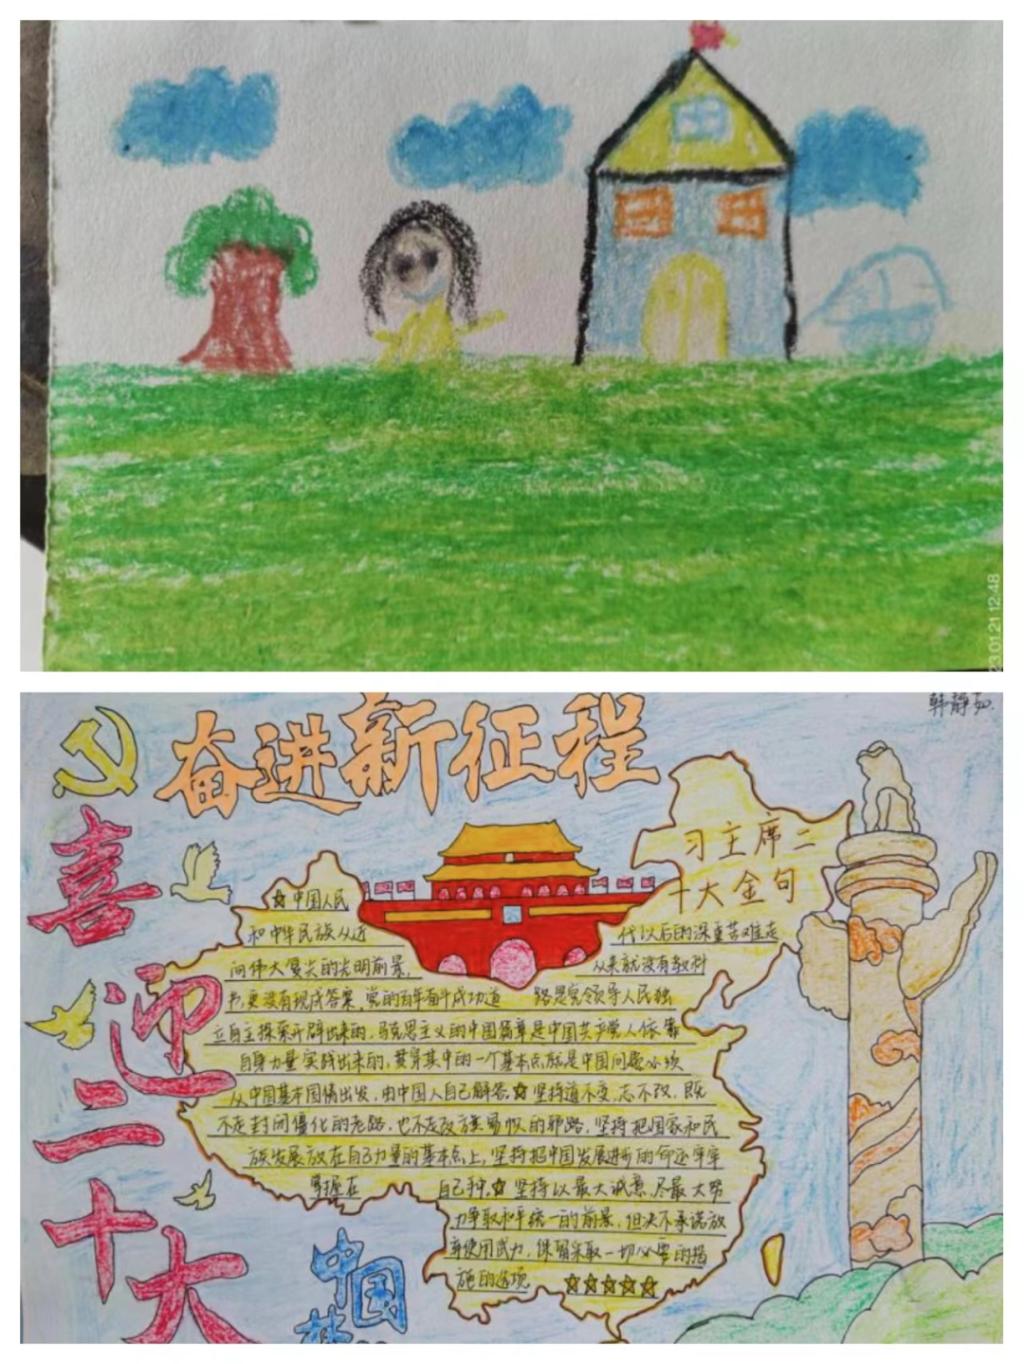 23.01.21 12:48
韩静茹
奋进新征程
喜迎二十大
习主席二
十大金句
☆中国人民
和中华民族从近代以后的深重苦难走
向伟大复兴的光明前景,从来就没有教科
书,更没有现成答案,党的百年奋斗成功道路是党领导人民独
立自主探索开辟出来的,马克思主义的中国篇章是中国共产党人依靠
自身力量实践出来的,贯穿其中的一个基本点就是中国问题必须
从中国基本国情出发,由中国人自己解答☆坚持道不变、志不改,既
不走封闭僵化的老路,也不走改旗易帜的邪路,坚持把国家和民
族发展放在自己力量的基本点上,坚持把中国发展进步的命运牢牢
掌握在自己种,☆坚持以最大诚意、尽最大努
力争取和平统一的前景,但决不承诺放
弃使用武力,保留采取一切必要的措
施的选项 ☆☆☆☆☆
中国梦